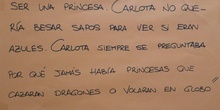 SER UNA PRINCESA CARLOTA NO QUE-
RÍA BESAR SAPOS PARA VER SI ERAN
AZULES. CARLOTA SIEMPRE SE PREGUNTABA
POR QUÉ JAMÁS HABÍA PRINCESAS QUE
CAZARAN DRAGONES O VOLARAN EN GLOBO